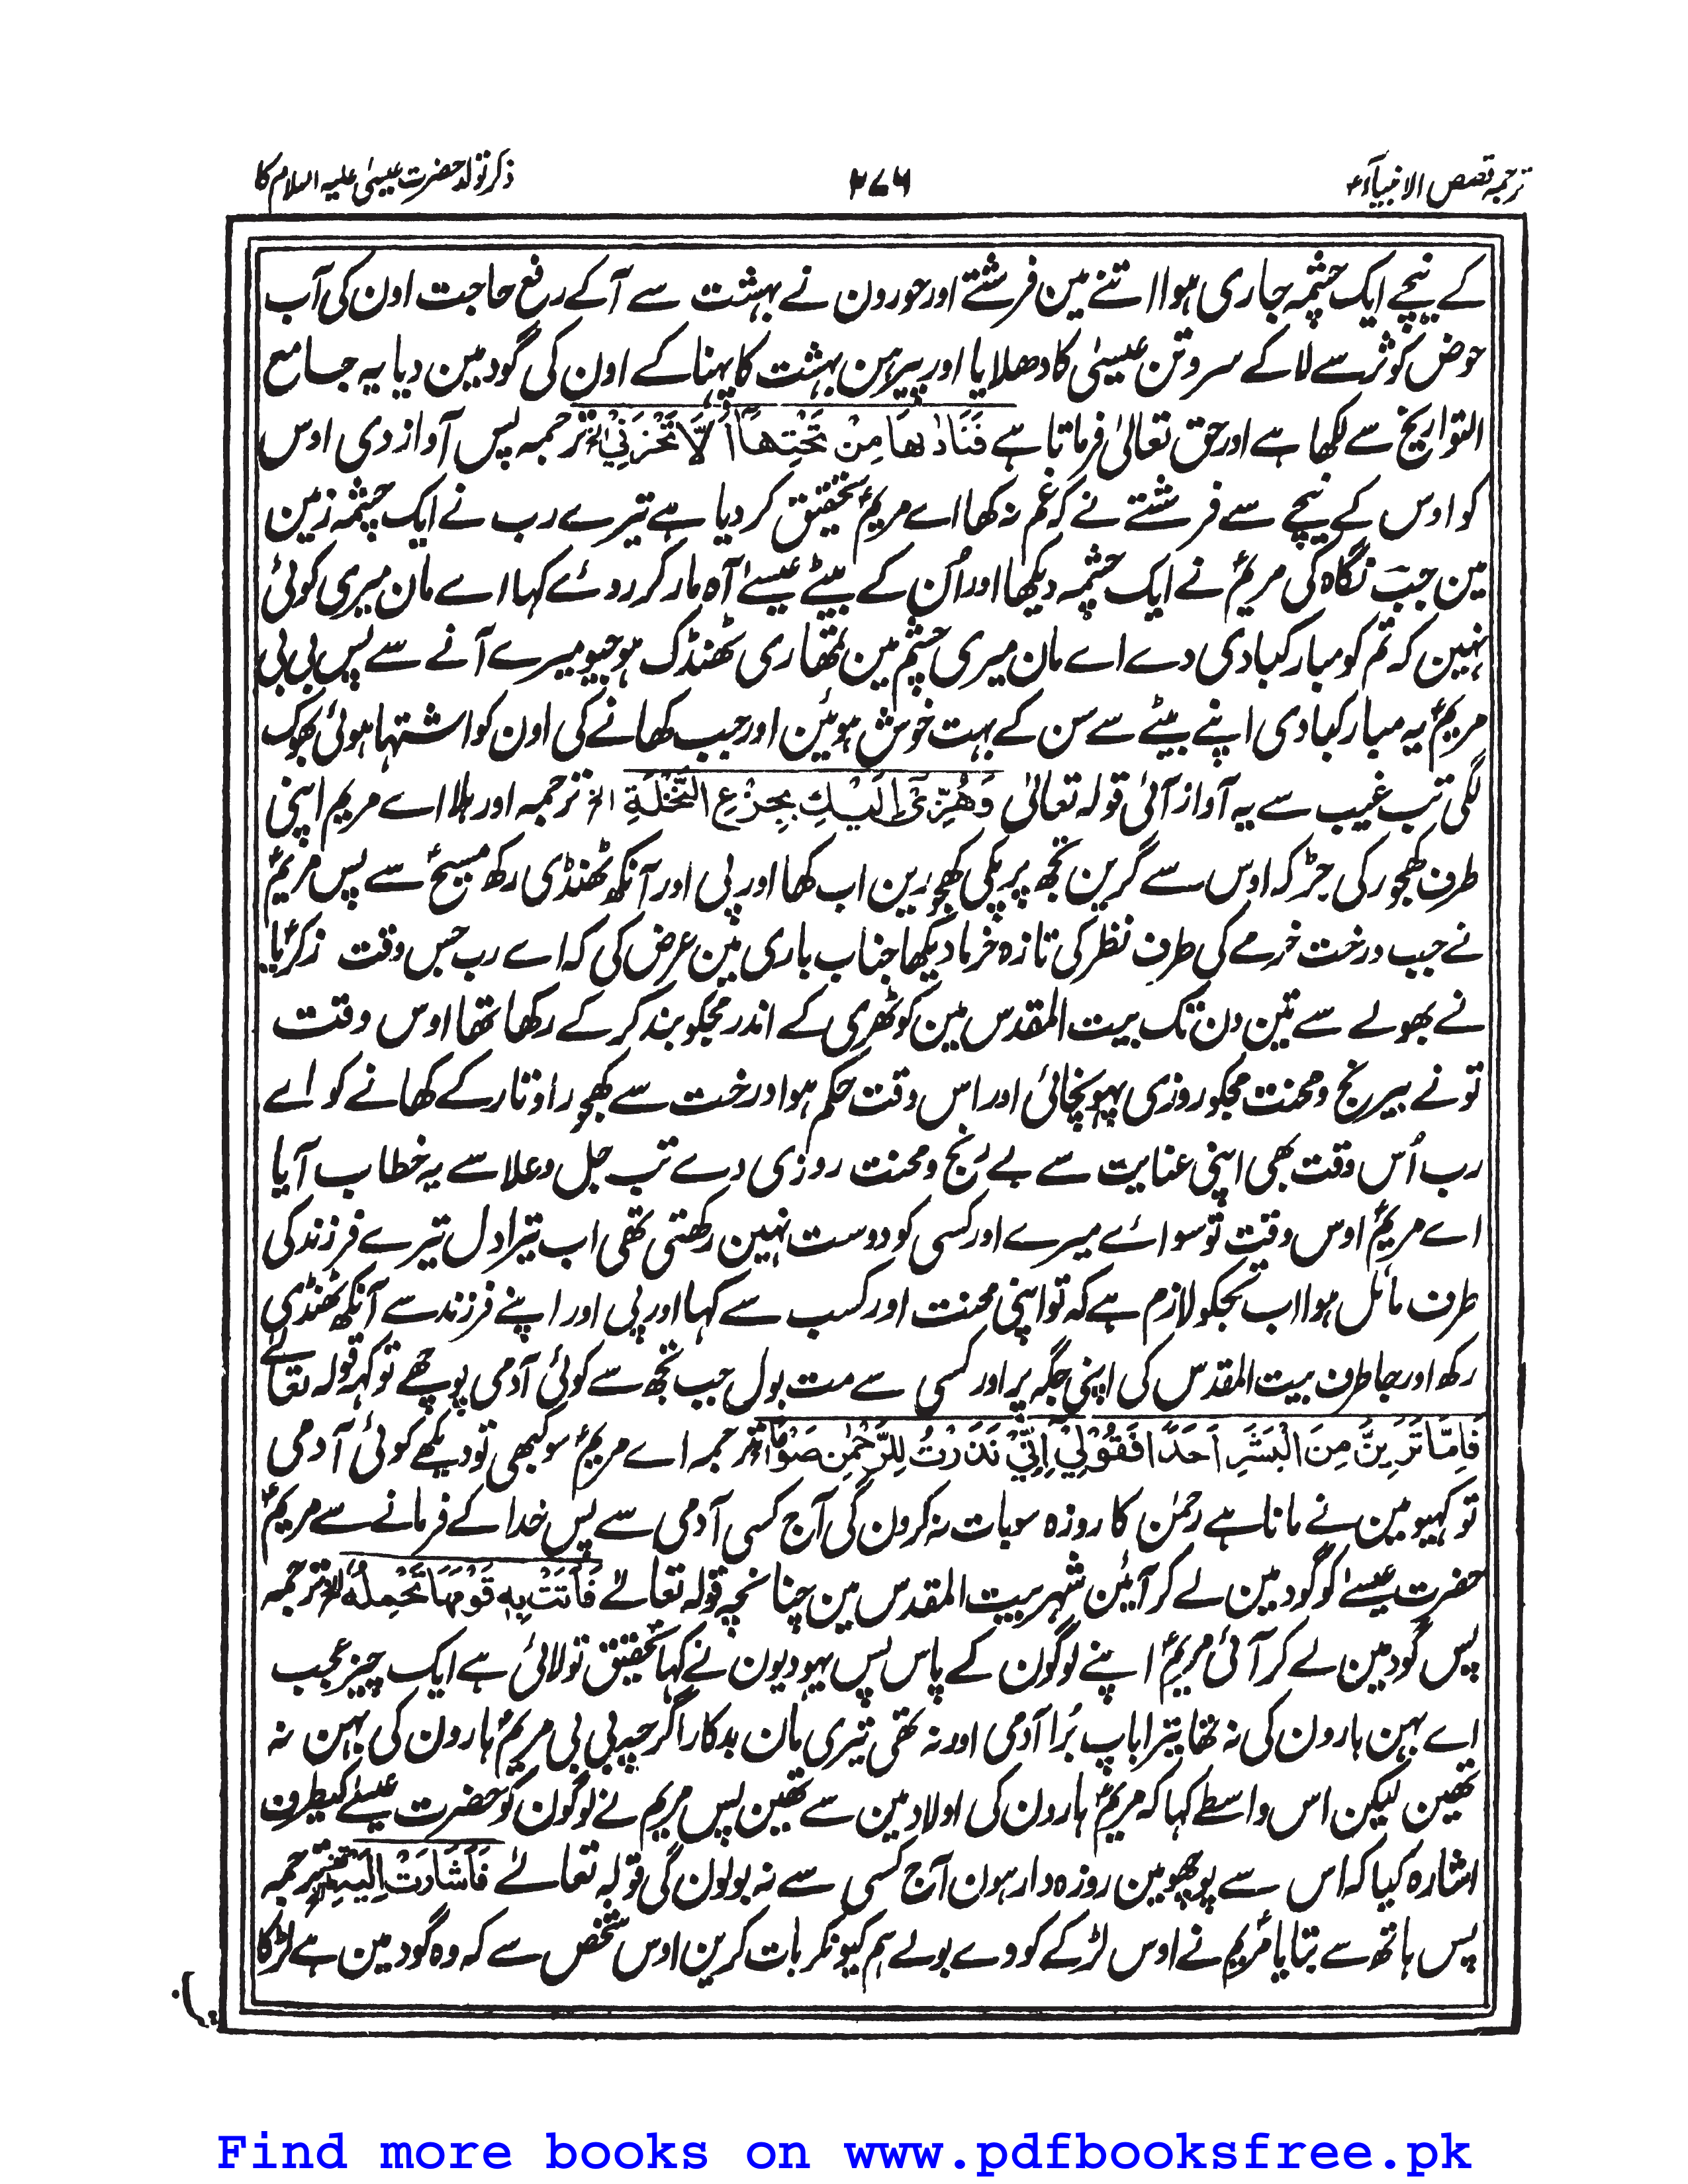 ترجمہ قصص الانبیآء
۲۷۶
ذکر تولد حضرت عیسیٰ علیہ السلام کا
کے نیچے ایک چشمہ جاری ہوا اتنے مین فرشتے اور حورون نے بہشت سے آکے رفع حاجت اون کی آب
حوض کوثر سے لا کے سر و تن عیسیٰ کا دھلایا اور پیرہن بہشت کا پہنا کے اون کی گود مین دیا یہ جامع
التواریخ سے لکھا ہے اور حق تعالیٰ فرماتا ہے فَنَادٰىهَا مِنْ تَحْتِهَآ اَلَّا تَحْزَنِيْ الخ ترجمہ پس آواز دی اوس
کو اوس کے نیچے سے فرشتے نے کہ غم نہ کھا اے مریمؑ تحقیق کر دیا ہے تیرے رب نے ایک چشمہ زمین
مین جب نگاہ کی مریمؑ نے ایک چشمہ دیکھا اور اُن کے بیٹے عیسےٰ آہ مار کر روئے کہا اے مان میری کوئی
نہین کہ تم کو مبارکبادی دے اے مان میری چشم مین تمھاری ٹھنڈک ہو جیو میرے آنے سے پس بی بی
مریمؑ یہ مبارکبادی اپنے بیٹے سے سن کے بہت خوش ہوئین اور جب کھانے کی اون کو اشتہا ہوئی بھوک
لگی تب غیب سے یہ آواز آئی قولہ تعالیٰ وَهُزِّيْٓ اِلَيْكِ بِجِذْعِ النَّخْلَةِ الخ ترجمہ اور ہلا اے مریم اپنی
طرف کھجور کی جڑ کہ اوس سے گرین تجھ پر پکی کھجورین اب کھا اور پی اور آنکھ ٹھنڈی رکھ مسیحؑ سے پس مریمؑ
نے جب درخت خرمے کی طرف نظر کی تازہ خرما دیکھا جناب باری مین عرض کی کہ اے رب جس وقت زکریاؑ
نے بھولے سے تین دن تک بیت المقدس مین کوٹھری کے اندر مجکو بند کر کے رکھا تھا اوس وقت
تو نے بیرنج و محنت مجکو روزی پہونچائی اور اس وقت حکم ہوا درخت سے کھجور اوتار کے کھانے کو اے
رب اُس وقت بھی اپنی عنایت سے بے رنج و محنت روزی دے تب جل وعلا سے یہ خطاب آیا
اے مریمؑ اوس وقت تو سوائے میرے اور کسی کو دوست نہین رکھتی تھی اب تیرا دل تیرے فرزند کی
طرف مائل ہوا اب تجکو لازم ہے کہ تو اپنی محنت اور کسب سے کہا اور پی اور اپنے فرزند سے آنکھ ٹھنڈی
رکھ اور جا طرف بیت المقدس کی اپنی جگہ پر اور کسی سے مت بول جب تجھ سے کوئی آدمی پوچھے تو کہہ قولہ تعالےٰ
فَاِمَّا تَرَيِنَّ مِنَ الْبَشَرِ اَحَدًا فَقُوْلِيْ اِنِّيْ نَذَرْتُ لِلرَّحْمٰنِ صَوْمًا الخ ترجمہ اے مریمؑ سو کبھی تو دیکھے کوئی آدمی
تو کہیو مین نے مانا ہے رحمٰن کا روزہ سو بات نہ کرون گی آج کسی آدمی سے پس خدا کے فرمانے سے مریمؑ
حضرت عیسےٰ کو گود مین لے کر آئین شہر بیت المقدس مین چنانچہ قولہ تعالےٰ فَاَتَتْ بِهٖ قَوْمَهَا تَحْمِلُهٗ الخ ترجمہ
پس گود مین لے کر آئی مریمؑ اپنے لوگون کے پاس پس یہودیون نے کہا تحقیق تو لائی ہے ایک چیز عجب
اے بہن ہارون کی نہ تھا تیرا باپ بُرا آدمی اور نہ تھی تیری مان بدکار اگرچہ بی بی مریمؑ ہارون کی بہن نہ
تھین لیکن اس واسطے کہا کہ مریمؑ ہارون کی اولاد مین سے تھین پس مریم نے لوگون کو حضرت عیسےٰ کیطرف
اشارہ کیا کہ اس سے پوچھو مین روزہ دار ہون آج کسی سے نہ بولون گی قولہ تعالےٰ فَاَشَارَتْ اِلَيْهِ ترجمہ
پس ہاتھ سے بتایا مریمؑ نے اوس لڑکے کو وے بولے ہم کیونکر بات کرین اوس شخص سے کہ وہ گود مین ہے لڑکا
Find more books on www.pdfbooksfree.pk